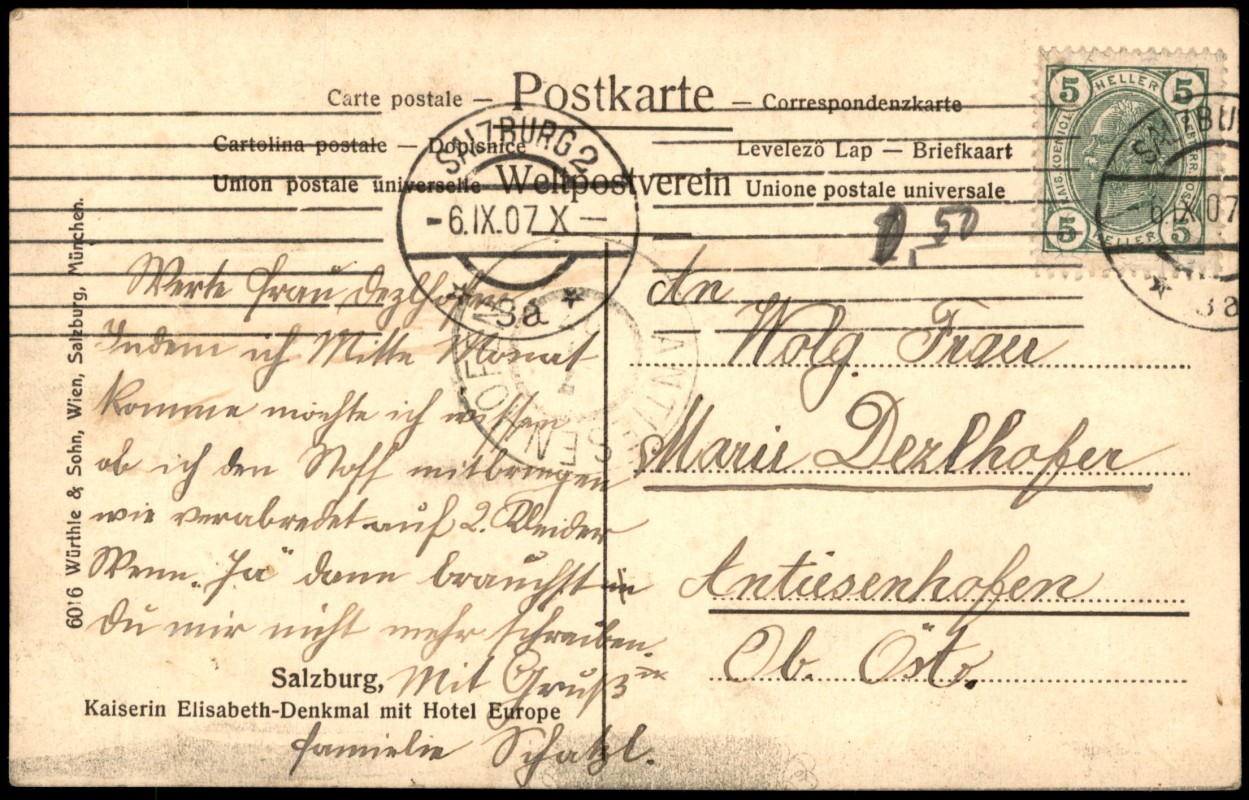 Carte postale — Postkarte — Correspondenzkarte
Cartolina postale — Dopisnice Levelező Lap — Briefkaart
Union postale universelle Weltpostverein Unione postale universale
5 HELLER 5
5 HELLER 5
SALZBURG 2
-6.IX.07 X-
* 3a *
SALZBURG
-6.IX.07
* 3a
ANTIESENHOFEN
50
Werte Frau Dezlhofer
Indem ich Mitte Monat
komme möchte ich wissen
ob ich den Stoff mitbringen
wie verabredet auf 2. Kleider
Wenn „Ja" dann brauchst
du mir nicht mehr schreiben.
Mit Gruß
Familie Schatzl.
An
Wolg. Frau
Marie Dezlhofer
Antiesenhofen
Ob. Östr.
Salzburg,
Kaiserin Elisabeth-Denkmal mit Hotel Europe
6016 Würthle & Sohn, Wien, Salzburg, München.